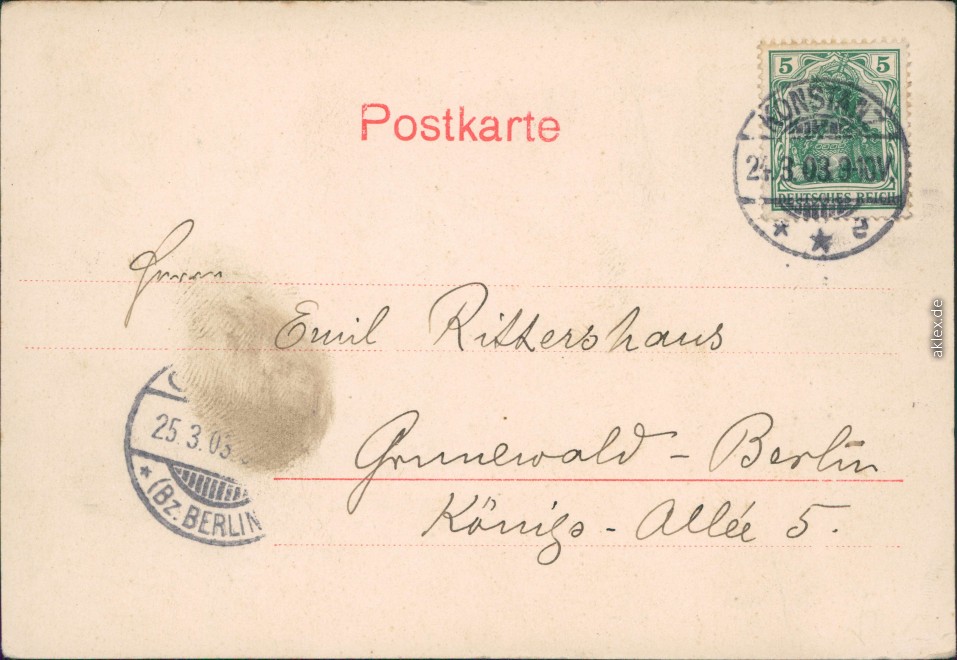 Postkarte
5 5
DEUTSCHES REICH
KONSTANZ
24.3.03.9-10V.
* * 2
Herrn
Emil Rittershaus
Grunewald - Berlin
Königs - Allée 5.
25.3.03
* (Bz. BERLIN
aklex.de